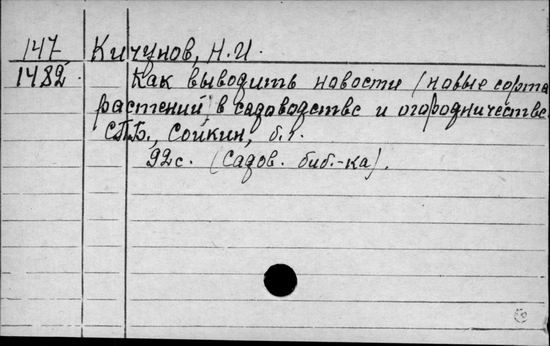 147 Кичунов, Н.И.
1482 Как выводить новости (новые сорта
растений) в садоводстве и огородничестве.
СПБ., Сойкин, б.г.
92с. (Садов. биб.-ка).